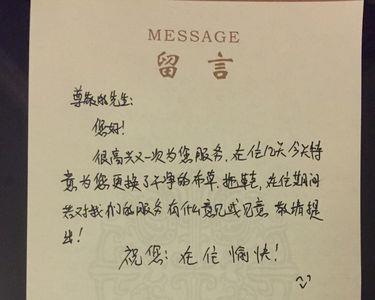 MESSAGE
留言
尊敬的先生:
您好!
很高兴又一次为您服务,在住12天今天特
意为您更换了干净的布草,拖鞋,在住期间
若对我们的服务有什么意见或见意敬请提
出!
祝您:在住愉快!